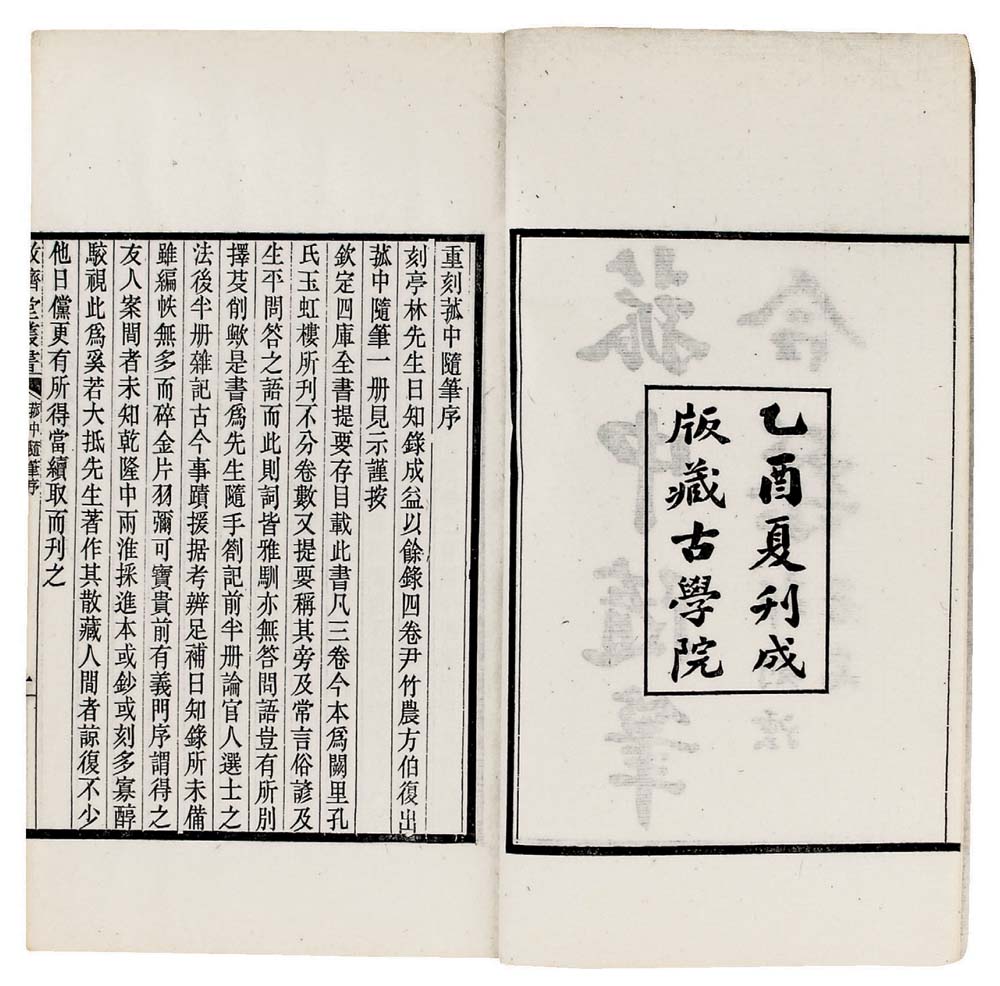 乙酉夏刊成
版藏古學院
重刻菰中隨筆序
刻亭林先生日知錄成益以餘錄四卷尹竹農方伯復出
菰中隨筆一册見示謹按
欽定四庫全書提要存目載此書凡三卷今本爲闕里孔
氏玉虹樓所刊不分卷數又提要稱其旁及常言俗諺及
生平問答之語而此則詞皆雅馴亦無答問語豈有所別
擇芟削歟是書爲先生隨手劄記前半册論官人選士之
法後半册雜記古今事蹟援据考辨足補日知錄所未備
雖編帙無多而碎金片羽彌可寶貴前有義門序謂得之
友人案間者未知乾隆中兩淮採進本或鈔或刻多寡醇
駁視此爲奚若大抵先生著作其散藏人間者諒復不少
他日儻更有所得當續取而刊之
敬躋堂叢書
菰中隨筆序
一